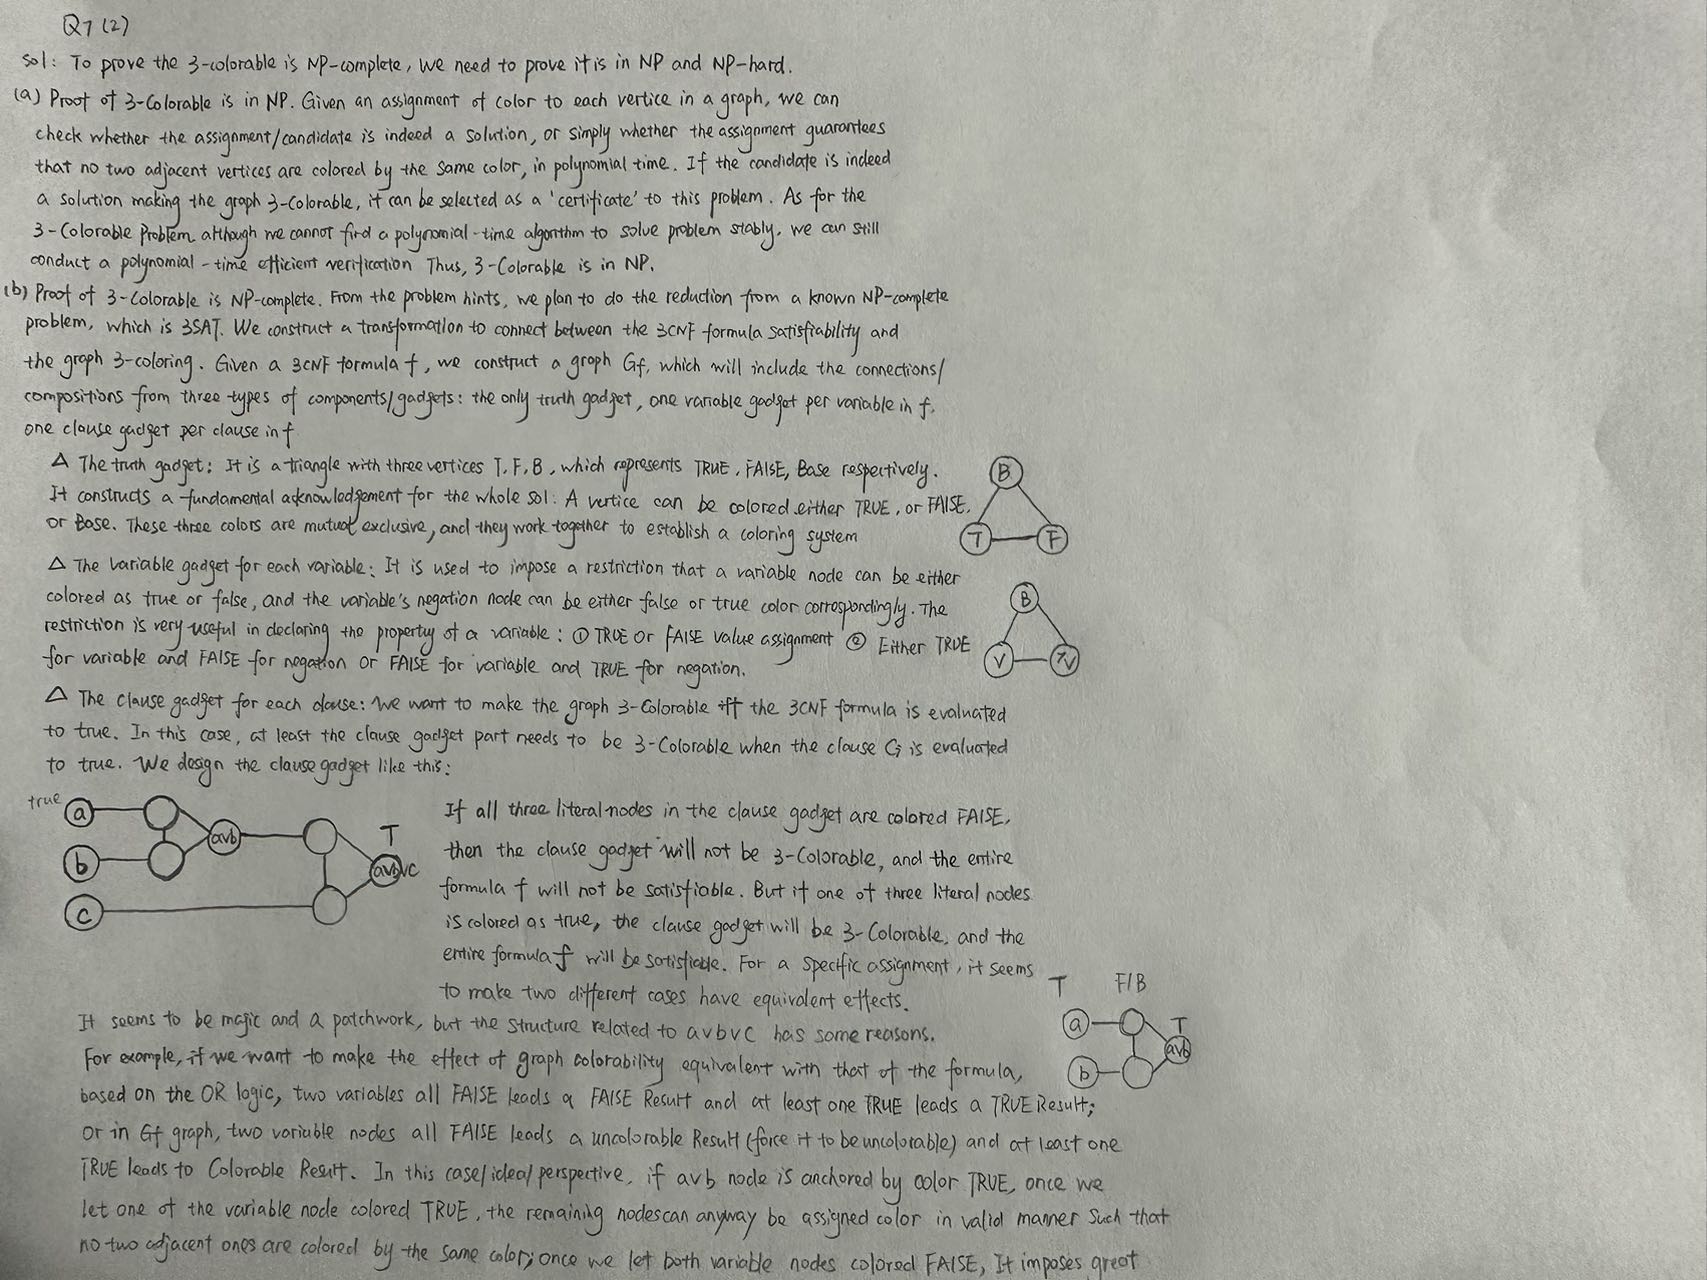 Q7 (2)
Sol: To prove the 3-colorable is NP-complete, we need to prove it is in NP and NP-hard.
(a) Proof of 3-Colorable is in NP. Given an assignment of color to each vertice in a graph, we can
check whether the assignment/candidate is indeed a solution, or simply whether the assignment guarantees
that no two adjacent vertices are colored by the same color, in polynomial time. If the candidate is indeed
a solution making the graph 3-Colorable, it can be selected as a 'certificate' to this problem. As for the
3-Colorable Problem, although we cannot find a polynomial-time algorithm to solve problem stably, we can still
conduct a polynomial-time efficient verification Thus, 3-Colorable is in NP.
(b) Proof of 3-Colorable is NP-complete. From the problem hints, we plan to do the reduction from a known NP-complete
problem, which is 3SAT. We construct a transformation to connect between the 3CNF formula satisfiability and
the graph 3-coloring. Given a 3CNF formula f, we construct a graph Gf, which will include the connections/
compositions from three types of components/gadgets: the only truth gadget, one variable gadget per variable in f,
one clause gadget per clause in f
△ The truth gadget: It is a triangle with three vertices T, F, B, which represents TRUE, FALSE, Base respectively.
It constructs a fundamental acknowledgement for the whole sol: A vertice can be colored either TRUE, or FALSE,
or Base. These three colors are mutual exclusive, and they work together to establish a coloring system
B
T F
△ The variable gadget for each variable: It is used to impose a restriction that a variable node can be either
colored as true or false, and the variable's negation node can be either false or true color correspondingly. The
restriction is very useful in declaring the property of a variable: ① TRUE or FALSE value assignment ② Either TRUE
for variable and FALSE for negation or FALSE for variable and TRUE for negation.
B
V ¬V
△ The clause gadget for each clause: We want to make the graph 3-Colorable iff the 3CNF formula is evaluated
to true. In this case, at least the clause gadget part needs to be 3-Colorable when the clause Ci is evaluated
to true. We design the clause gadget like this:
true a
b
c
a∨b
T
a∨b∨c
If all three literal nodes in the clause gadget are colored FALSE,
then the clause gadget will not be 3-Colorable, and the entire
formula f will not be satisfiable. But if one of three literal nodes
is colored as true, the clause gadget will be 3-Colorable, and the
entire formula f will be satisfiable. For a specific assignment, it seems
to make two different cases have equivalent effects.
It seems to be magic and a patchwork, but the structure related to a∨b∨c has some reasons.
For example, if we want to make the effect of graph colorability equivalent with that of the formula,
based on the OR logic, two variables all FALSE leads a FALSE Result and at least one TRUE leads a TRUE Result;
or in Gf graph, two variable nodes all FALSE leads a uncolorable Result (force it to be uncolorable) and at least one
TRUE leads to Colorable Result. In this case/idea/perspective, if a∨b node is anchored by color TRUE, once we
let one of the variable node colored TRUE, the remaining nodes can anyway be assigned color in valid manner such that
no two adjacent ones are colored by the same color; once we let both variable nodes colored FALSE, It imposes great
T F/B
a T
a∨b
b